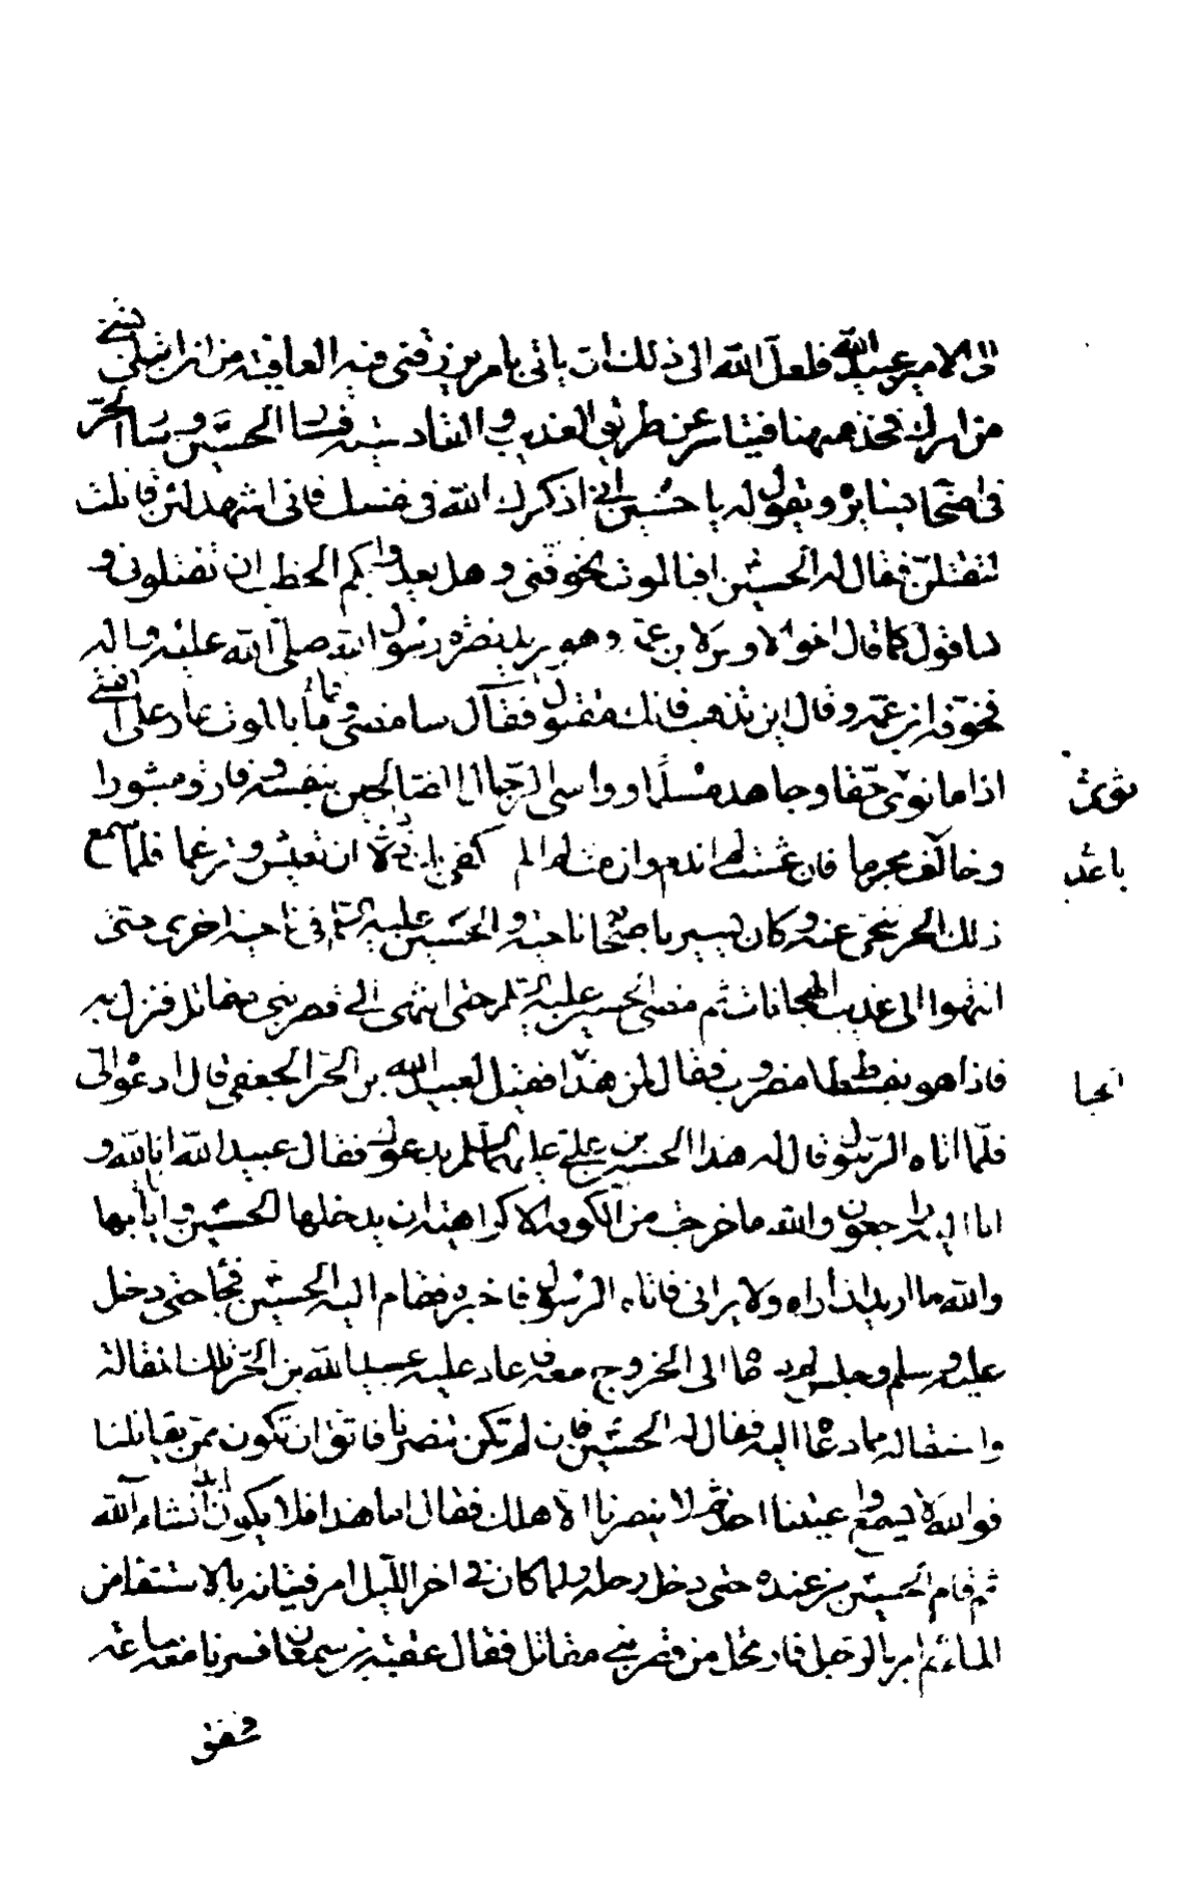 الى الامير عبيد الله فلعل الله الى ذلك ان ياتى بامر يرزقنى فيه العافية من ان ابتلى بشئ
من امرك فخذ ههنا فتياسر عن طريق العذيب والقادسية فسار الحسين وسار الحر
فى اصحابه يسايره ويقول له يا حسين انى اذكرك الله فى نفسك فانى اشهد لئن قاتلت
لتقتلن فقال له الحسين افبالموت تخوفنى وهل يعدوا بكم الخطب ان تقتلونى و
ساقول كما قال اخو الاوس لابن عمه وهو يريد نصرة رسول الله صلى الله عليه واله
فخوفه ابن عمه وقال اين تذهب فانك مقتول فقال سامضى وما بالموت عار على الفتى
اذا ما نوى حقا وجاهد مسلما وواسى الرجال الصالحين بنفسه وفارق مثبورا
وخالف مجرما فان عشت لم اندم وان مت لم الم كفى بك ذلا ان تعيش وترغما فلما سمع
ذلك الحر تنحى عنه وكان يسير باصحابه ناحية والحسين عليه السلم فى ناحية اخرى حتى
انتهوا الى عذيب الهجانات ثم مضى الحسين عليه السلم حتى انتهى الى قصر بنى مقاتل فنزل به
فاذا هو بفسطاط مضروب فقال لمن هذا فقيل لعبيد الله بن الحر الجعفى قال ادعوه الى
فلما اتاه الرسول قال له هذا الحسين بن على عليهما السلم يدعوك فقال عبيد الله انا لله و
انا اليه راجعون والله ما خرجت من الكوفة الا كراهية ان يدخلها الحسين وانا بها
والله ما اريد ان اراه ولا يرانى فاتاه الرسول فاخبره فقام اليه الحسين فجاء حتى دخل
عليه وسلم وجلس ثم دعاه الى الخروج معه فاعاد عليه عبيد الله بن الحر تلك المقالة
واستقاله مما دعاه اليه فقال له الحسين فان لم تكن تنصرنا فاتق ان تكون ممن يقاتلنا
فوالله لا يسمع واعيتنا احد ثم لا ينصرنا الا هلك فقال اما هذا فلا يكون ابدا انشاء الله
ثم قام الحسين من عنده حتى دخل رحله ولما كان فى اخر الليل امر فتيانه بالاستقاء من
الماء ثم امر بالرحيل فارتحل من قصر بنى مقاتل فقال عقبة بن سمعان فسرنا معه ساعة
فخفق
نوى
باعد